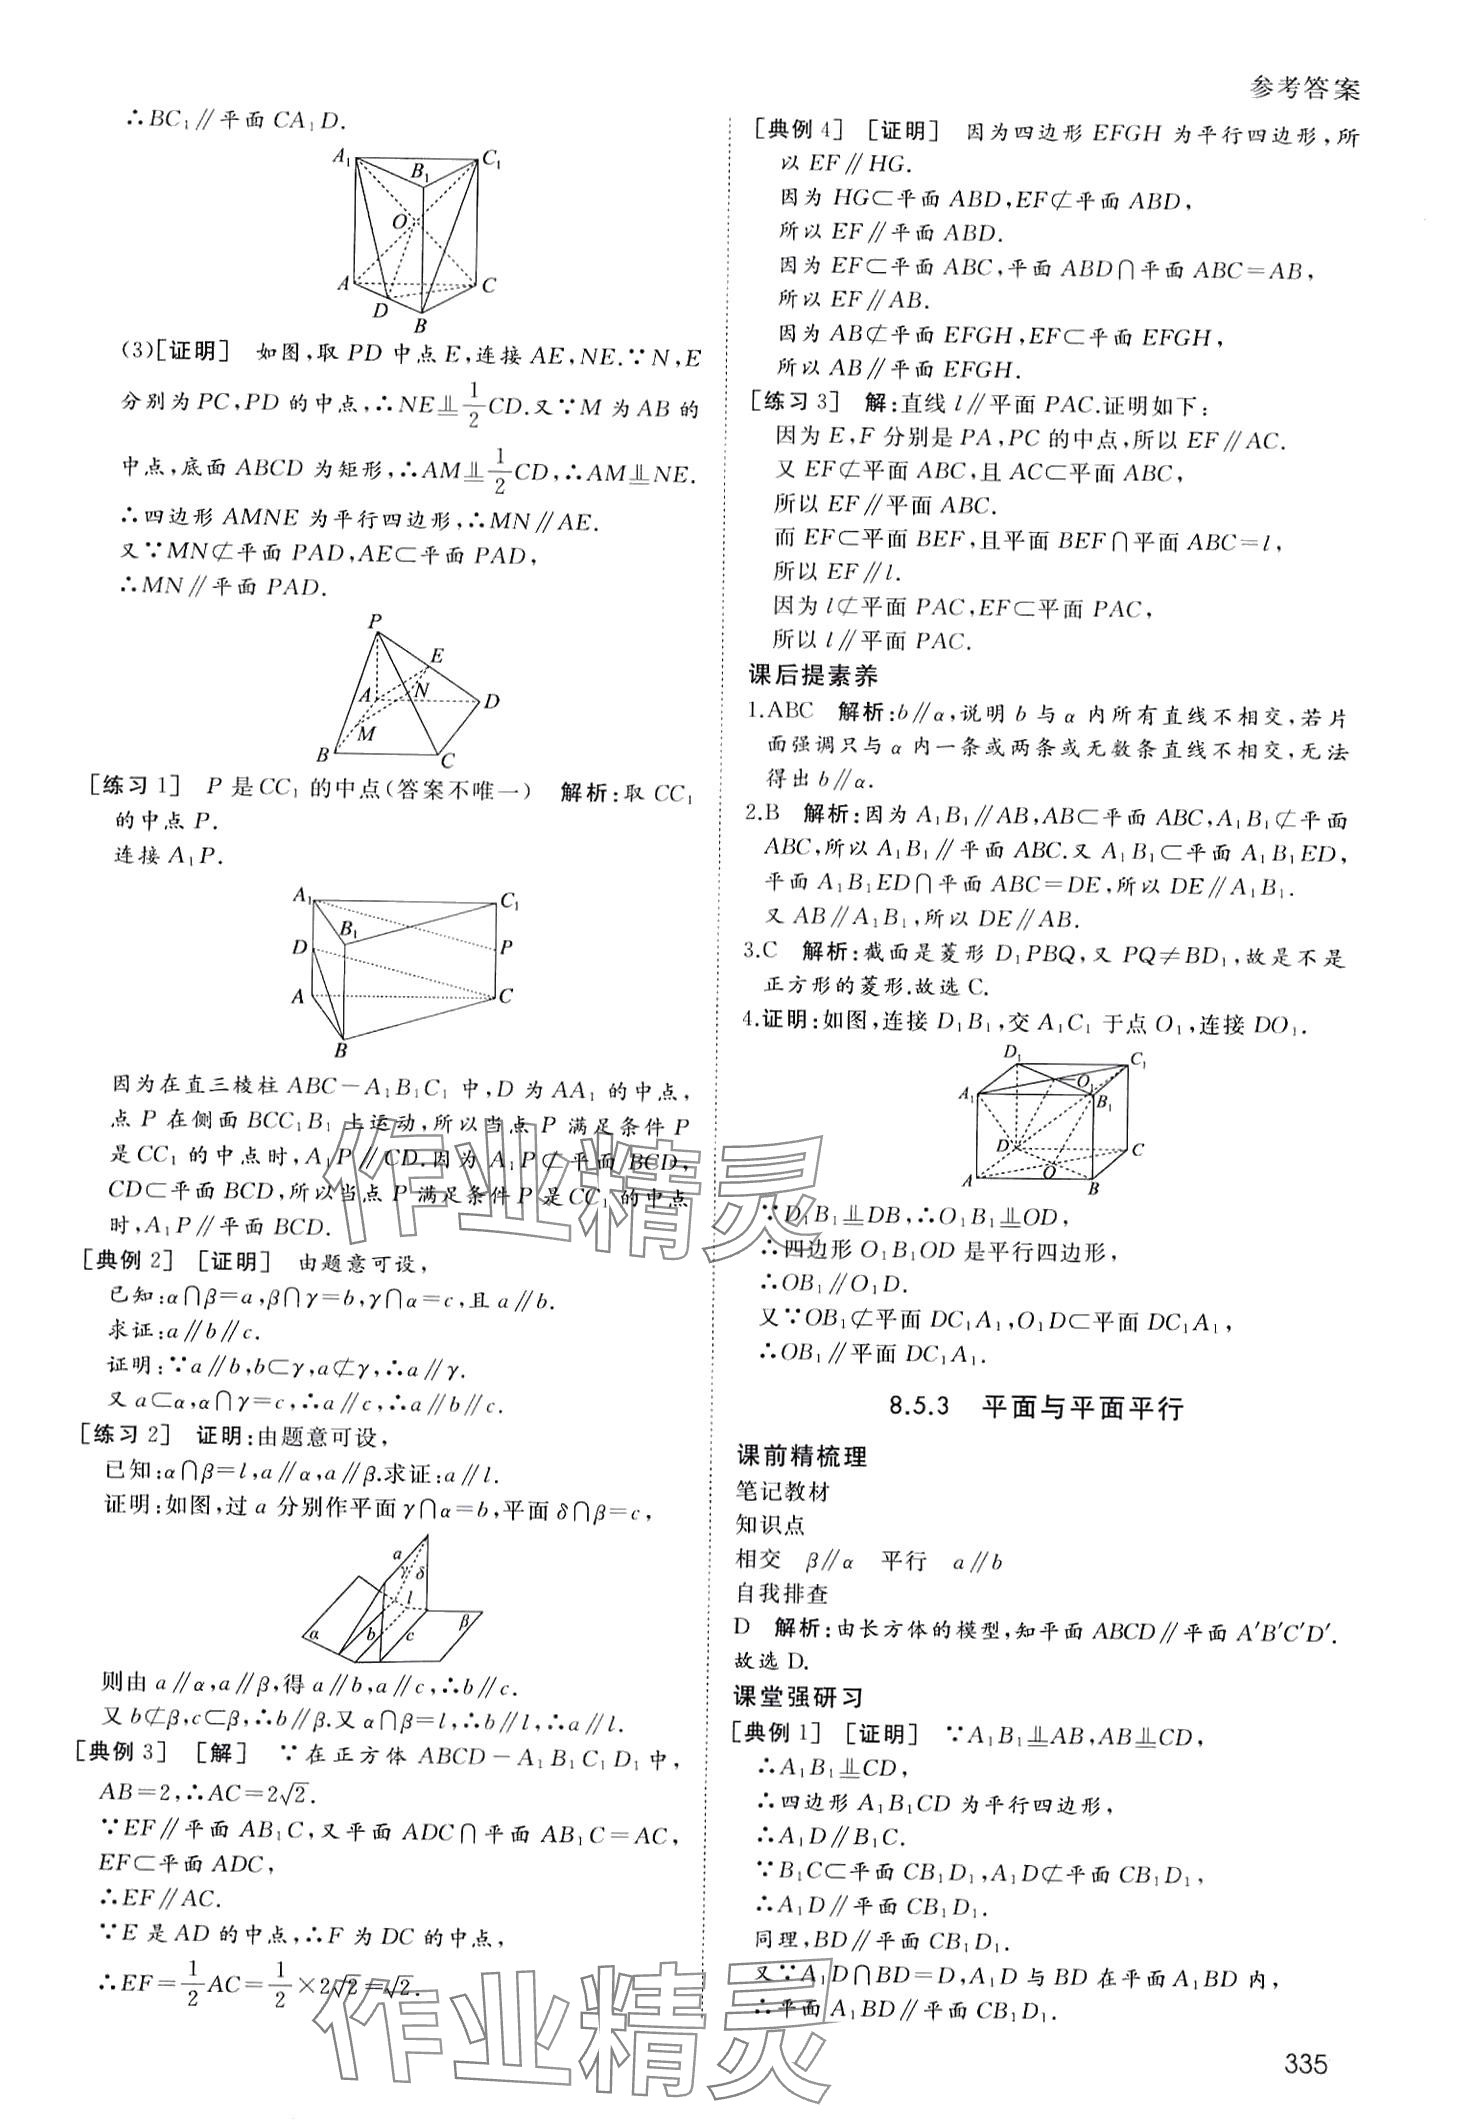 参考答案
∴BC₁∥平面 CA₁D.
A₁
C₁
B₁
O
A
C
D
B
(3)[证明] 如图,取 PD 中点 E,连接 AE,NE.∵N,E
分别为 PC,PD 的中点,∴NE⫫1/2CD.又∵M 为 AB 的
中点,底面 ABCD 为矩形,∴AM⫫1/2CD,∴AM⫫NE.
∴四边形 AMNE 为平行四边形,∴MN∥AE.
又∵MN⊄平面 PAD,AE⊂平面 PAD,
∴MN∥平面 PAD.
P
E
A
N
D
M
B
C
[练习 1] P 是 CC₁ 的中点(答案不唯一) 解析:取 CC₁
的中点 P.
连接 A₁P.
A₁
C₁
B₁
D
P
A
C
B
因为在直三棱柱 ABC-A₁B₁C₁ 中,D 为 AA₁ 的中点,
点 P 在侧面 BCC₁B₁ 上运动,所以当点 P 满足条件 P
是 CC₁ 的中点时,A₁P∥CD.因为 A₁P⊄平面 BCD,
CD⊂平面 BCD,所以当点 P 满足条件 P 是 CC₁ 的中点
时,A₁P∥平面 BCD.
[典例 2] [证明] 由题意可设,
已知:α∩β=a,β∩γ=b,γ∩α=c,且 a∥b.
求证:a∥b∥c.
证明:∵a∥b,b⊂γ,a⊄γ,∴a∥γ.
又 a⊂α,α∩γ=c,∴a∥c,∴a∥b∥c.
[练习 2] 证明:由题意可设,
已知:α∩β=l,a∥α,a∥β.求证:a∥l.
证明:如图,过 a 分别作平面 γ∩α=b,平面 δ∩β=c,
a
γ
δ
l
α
b
c
β
则由 a∥α,a∥β,得 a∥b,a∥c,∴b∥c.
又 b⊄β,c⊂β,∴b∥β.又 α∩β=l,∴b∥l,∴a∥l.
[典例 3] [解] ∵在正方体 ABCD-A₁B₁C₁D₁ 中,
AB=2,∴AC=2√2.
∵EF∥平面 AB₁C,又平面 ADC∩平面 AB₁C=AC,
EF⊂平面 ADC,
∴EF∥AC.
∵E 是 AD 的中点,∴F 为 DC 的中点,
∴EF=1/2AC=1/2×2√2=√2.
[典例 4] [证明] 因为四边形 EFGH 为平行四边形,所
以 EF∥HG.
因为 HG⊂平面 ABD,EF⊄平面 ABD,
所以 EF∥平面 ABD.
因为 EF⊂平面 ABC,平面 ABD∩平面 ABC=AB,
所以 EF∥AB.
因为 AB⊄平面 EFGH,EF⊂平面 EFGH,
所以 AB∥平面 EFGH.
[练习 3] 解:直线 l∥平面 PAC.证明如下:
因为 E,F 分别是 PA,PC 的中点,所以 EF∥AC.
又 EF⊄平面 ABC,且 AC⊂平面 ABC,
所以 EF∥平面 ABC.
而 EF⊂平面 BEF,且平面 BEF∩平面 ABC=l,
所以 EF∥l.
因为 l⊄平面 PAC,EF⊂平面 PAC,
所以 l∥平面 PAC.
课后提素养
1.ABC 解析:b∥α,说明 b 与 α 内所有直线不相交,若片
面强调只与 α 内一条或两条或无数条直线不相交,无法
得出 b∥α.
2.B 解析:因为 A₁B₁∥AB,AB⊂平面 ABC,A₁B₁⊄平面
ABC,所以 A₁B₁∥平面 ABC.又 A₁B₁⊂平面 A₁B₁ED,
平面 A₁B₁ED∩平面 ABC=DE,所以 DE∥A₁B₁.
又 AB∥A₁B₁,所以 DE∥AB.
3.C 解析:截面是菱形 D₁PBQ,又 PQ≠BD₁,故是不是
正方形的菱形.故选 C.
4.证明:如图,连接 D₁B₁,交 A₁C₁ 于点 O₁,连接 DO₁.
D₁
C₁
O₁
A₁
B₁
D
C
O
A
B
∵D₁B₁⫫DB,∴O₁B₁⫫OD,
∴四边形 O₁B₁OD 是平行四边形,
∴OB₁∥O₁D.
又∵OB₁⊄平面 DC₁A₁,O₁D⊂平面 DC₁A₁,
∴OB₁∥平面 DC₁A₁.
8.5.3 平面与平面平行
课前精梳理
笔记教材
知识点
相交 β∥α 平行 a∥b
自我排查
D 解析:由长方体的模型,知平面 ABCD∥平面 A′B′C′D′.
故选 D.
课堂强研习
[典例 1] [证明] ∵A₁B₁⫫AB,AB⫫CD,
∴A₁B₁⫫CD,
∴四边形 A₁B₁CD 为平行四边形,
∴A₁D∥B₁C.
∵B₁C⊂平面 CB₁D₁,A₁D⊄平面 CB₁D₁,
∴A₁D∥平面 CB₁D₁.
同理,BD∥平面 CB₁D₁.
又∵A₁D∩BD=D,A₁D 与 BD 在平面 A₁BD 内,
∴平面 A₁BD∥平面 CB₁D₁.
作业精灵
作业精灵
335